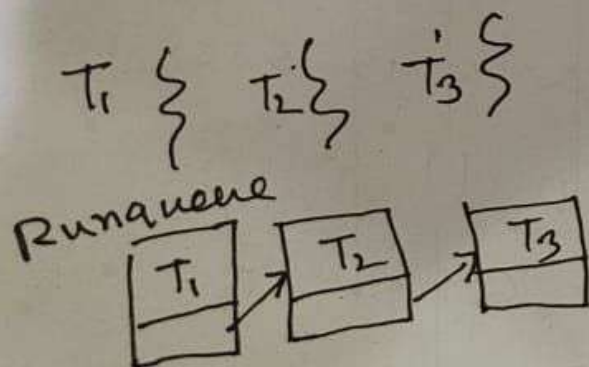 T1 T2 T3
Runqueue
T1 T2 T3